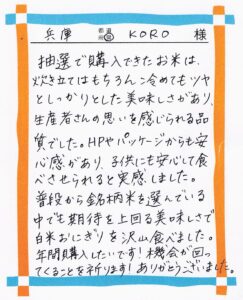 兵庫 都道府県 KORO 様
抽選で購入できたお米は、
炊き立てはもちろん冷めてもツヤ
としっかりとした美味しさがあり、
生産者さんの思いを感じられる品
質でした。HPやパッケージからも安
心感があり、子供にも安心して食
べさせられると実感しました。
普段から銘柄米を選んでいる
中でも期待を上回る美味しさで
白米おにぎりを沢山食べました。
年間購入したいです！機会が回っ
てくることを祈ります！ありがとうございました。